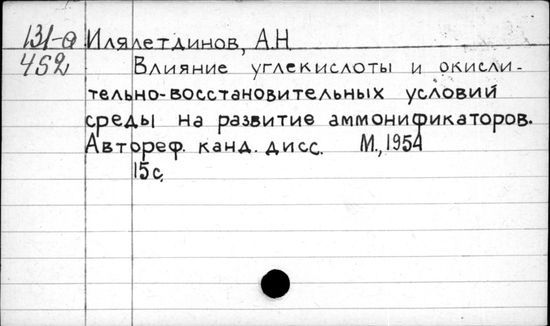 131-а Илялетдинов, А.Н
452 Влияние углекислоты и окисли-
тельно-восстановительных условий
среды на развитие аммонификаторов.
Автореф. канд. дисс. М., 1954
15 с.